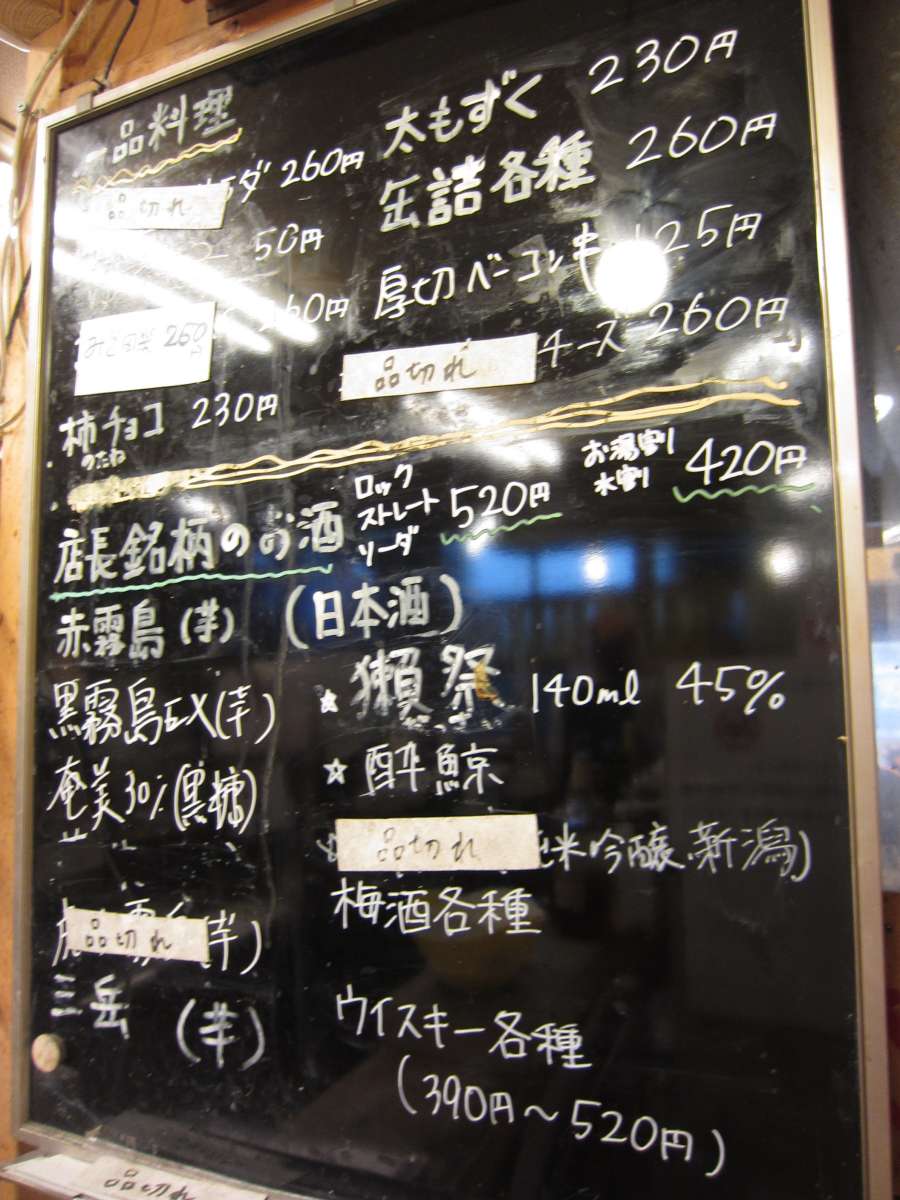 一品料理
ラダ 260円
品切れ
50円
260円
260
柿チョコ 230円
のたね
太もずく 230円
缶詰各種 260円
厚切ベーコン串 25円
チーズ 260円
品切れ
店長銘柄のお酒
ロック
ストレート 520円
ソーダ
お湯割り
水割り 420円
赤霧島(芋)
黒霧島EX(芋)
奄美30%(黒糖)
霧島(芋)
品切れ
三岳 (芋)
(日本酒)
☆獺祭 140ml 45%
☆酔鯨
品切れ
米吟醸.新潟)
梅酒各種
ウイスキー各種
(390円～520円)
品切れ